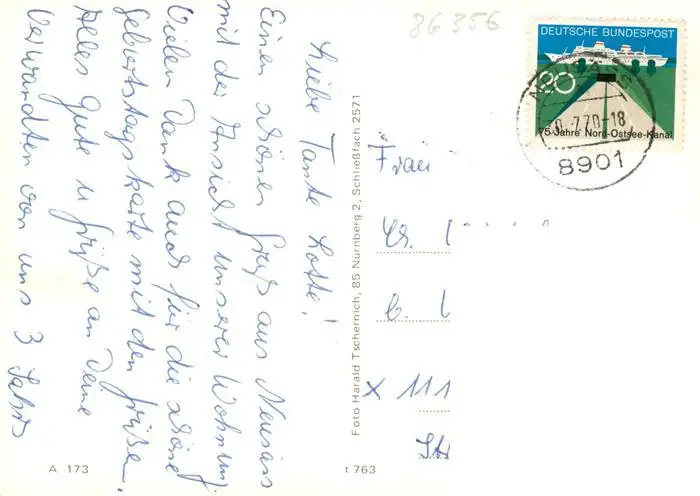 86356
Liebe Tante Lotte!
Einen schönen Gruß aus Neusäss
mit der Ansicht unserer Wohnung.
Vielen Dank auch für die schöne
Geburtstagskarte mit den Grüßen.
Alles Gute u. Grüße an Deine
Verwandten von uns 3
A 173
t 763
Foto Harald Tschernich, 85 Nürnberg 2, Schließfach 2571
DEUTSCHE BUNDESPOST
20
75 Jahre Nord-Ostsee-Kanal
.7.70-18
8901
Fräu
X 111